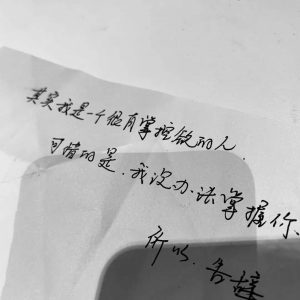 其实我是一个很有掌控欲的人.
可惜的是.我没办法掌握你、
所以.告辞